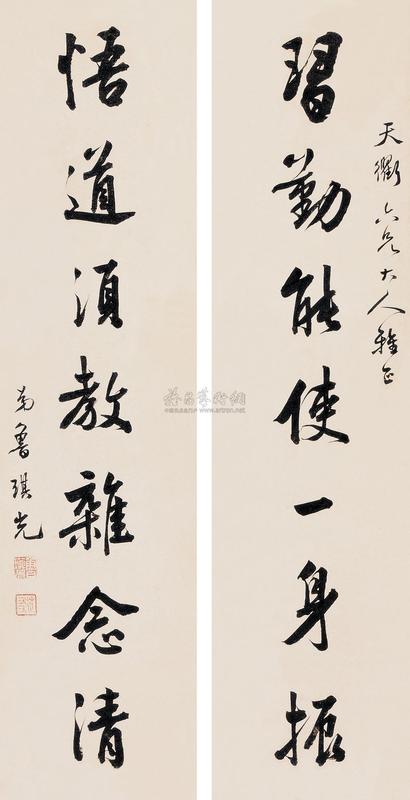 天衢六兄大人雅正
習勤能使一身振
悟道須教雜念清
弟魯琪光
雅昌藝術網